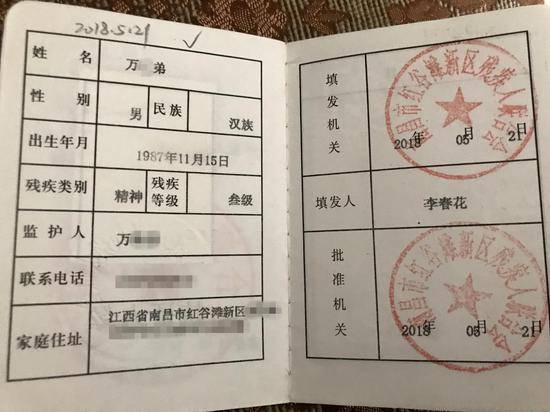 2018.5.21 ✓
姓名 万 弟
性别 男 民族 汉族
出生年月 1987年11月15日
残疾类别 精神 残疾等级 叁级
监护人 万
联系电话
家庭住址 江西省南昌市红谷滩新区
填发机关
南昌市红谷滩新区残疾人联合会
2018年 05月 21日
填发人 李春花
批准机关
南昌市红谷滩新区残疾人联合会
2018年 05月 21日